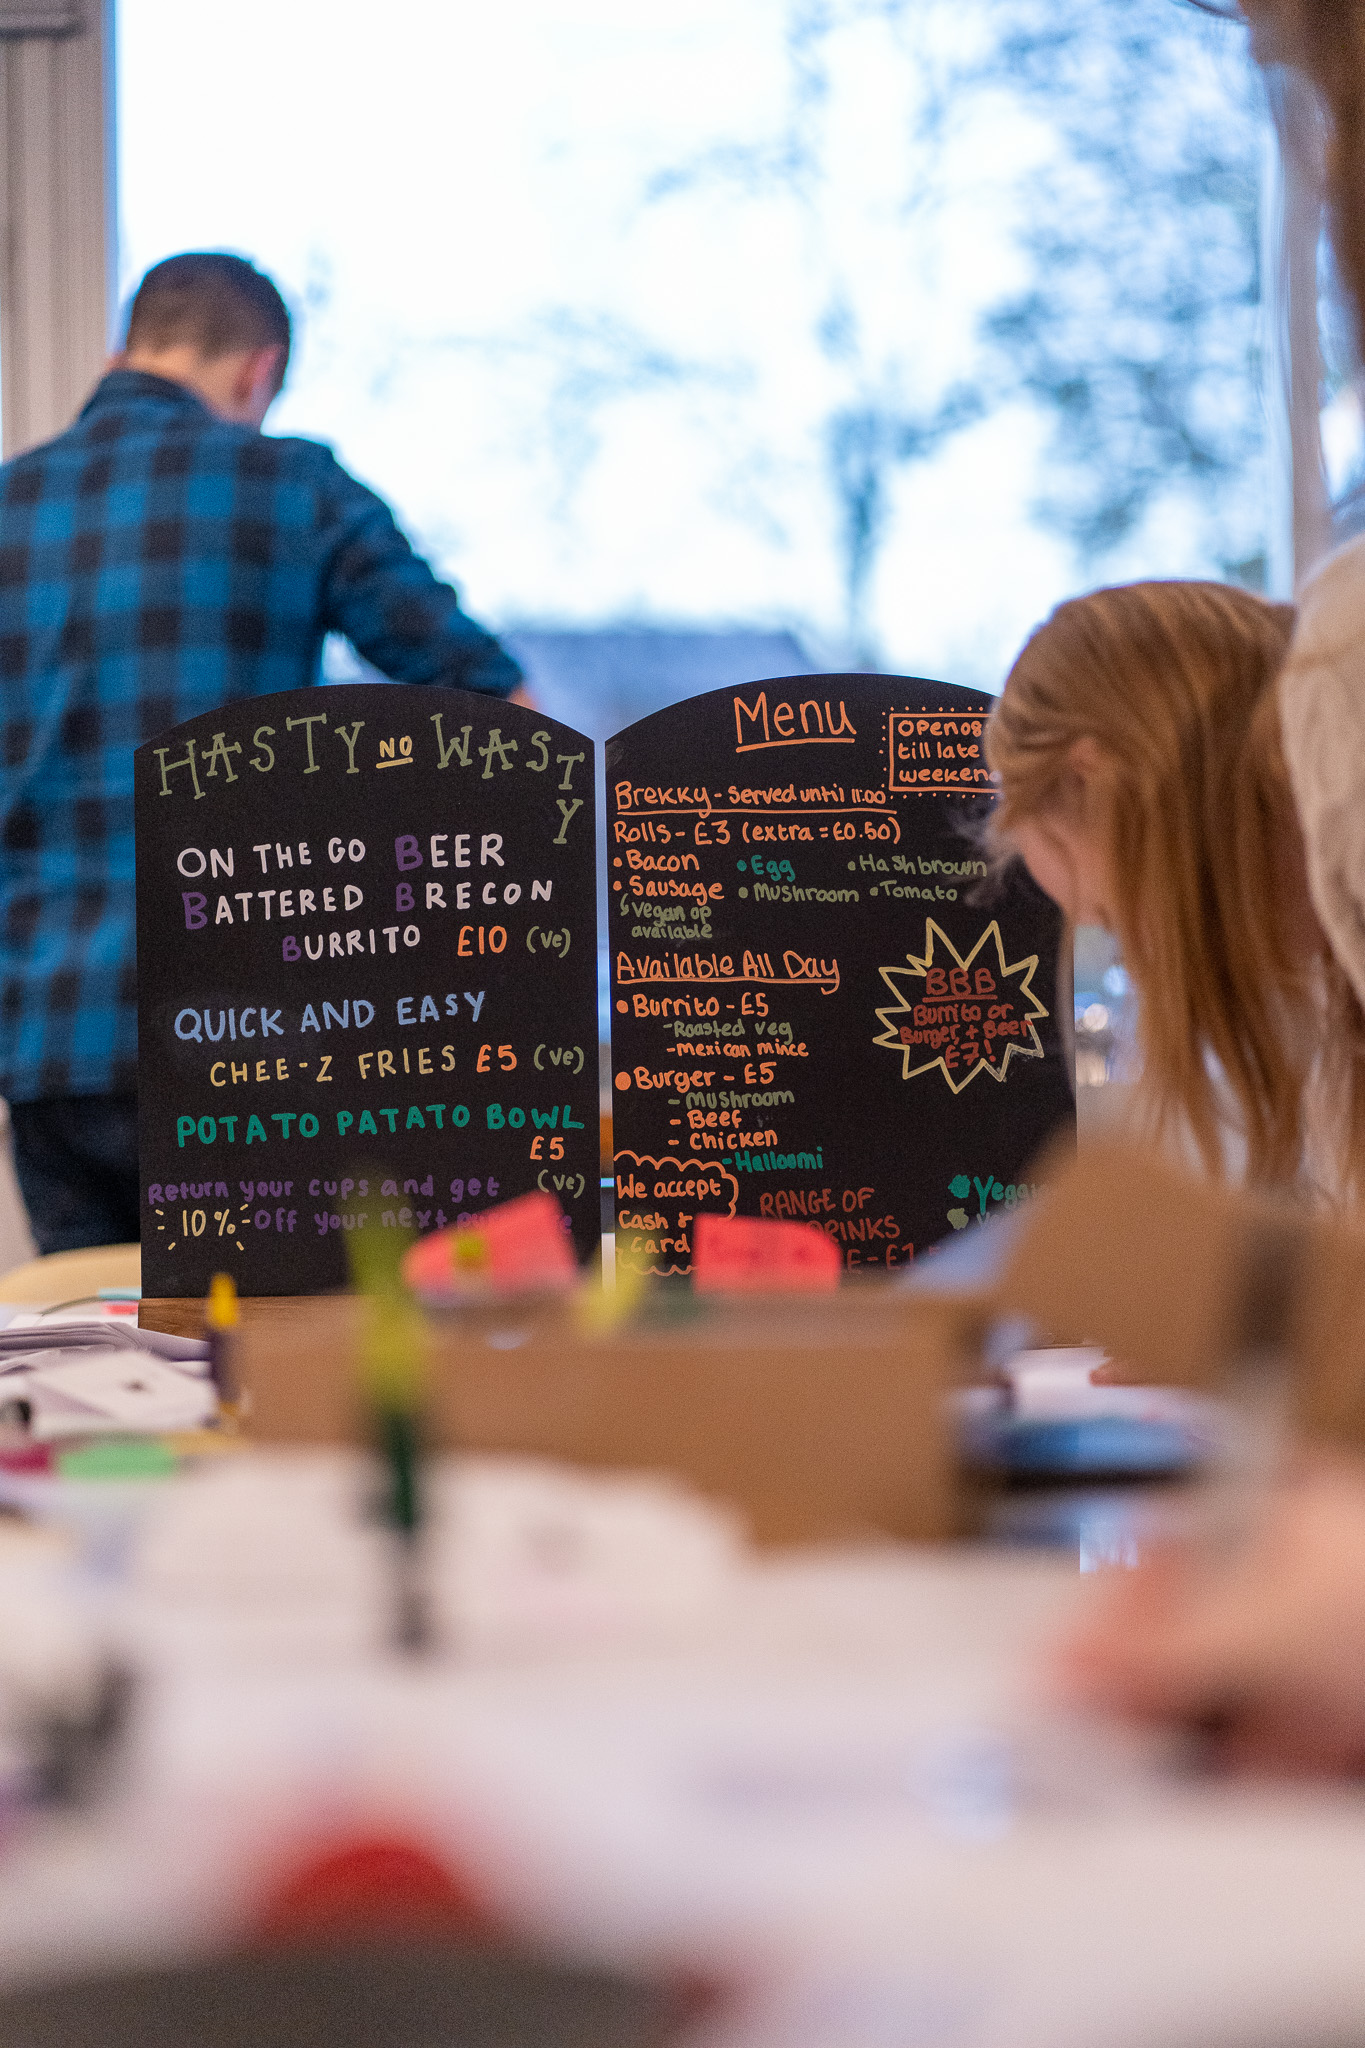 HASTY NO WASTY
ON THE GO BEER
BATTERED BRECON
BURRITO £10 (ve)
QUICK AND EASY
CHEE-Z FRIES £5 (ve)
POTATO PATATO BOWL
£5
(ve)
Return your cups and get
10% off your next
Menu
OPEN 08
till late
weekend
Brekky - Served until 11:00
Rolls - £3 (extra = £0.50)
• Bacon • Egg • Hash brown
• Sausage • Mushroom • Tomato
vegan op
available
Available All Day
• Burrito - £5
- Roasted veg
- mexican mince
• Burger - £5
- Mushroom
- Beef
- Chicken
- Halloomi
BBB
Burrito or
Burger, + Beer
£7!
We accept
Cash &
Card
RANGE OF
DRINKS